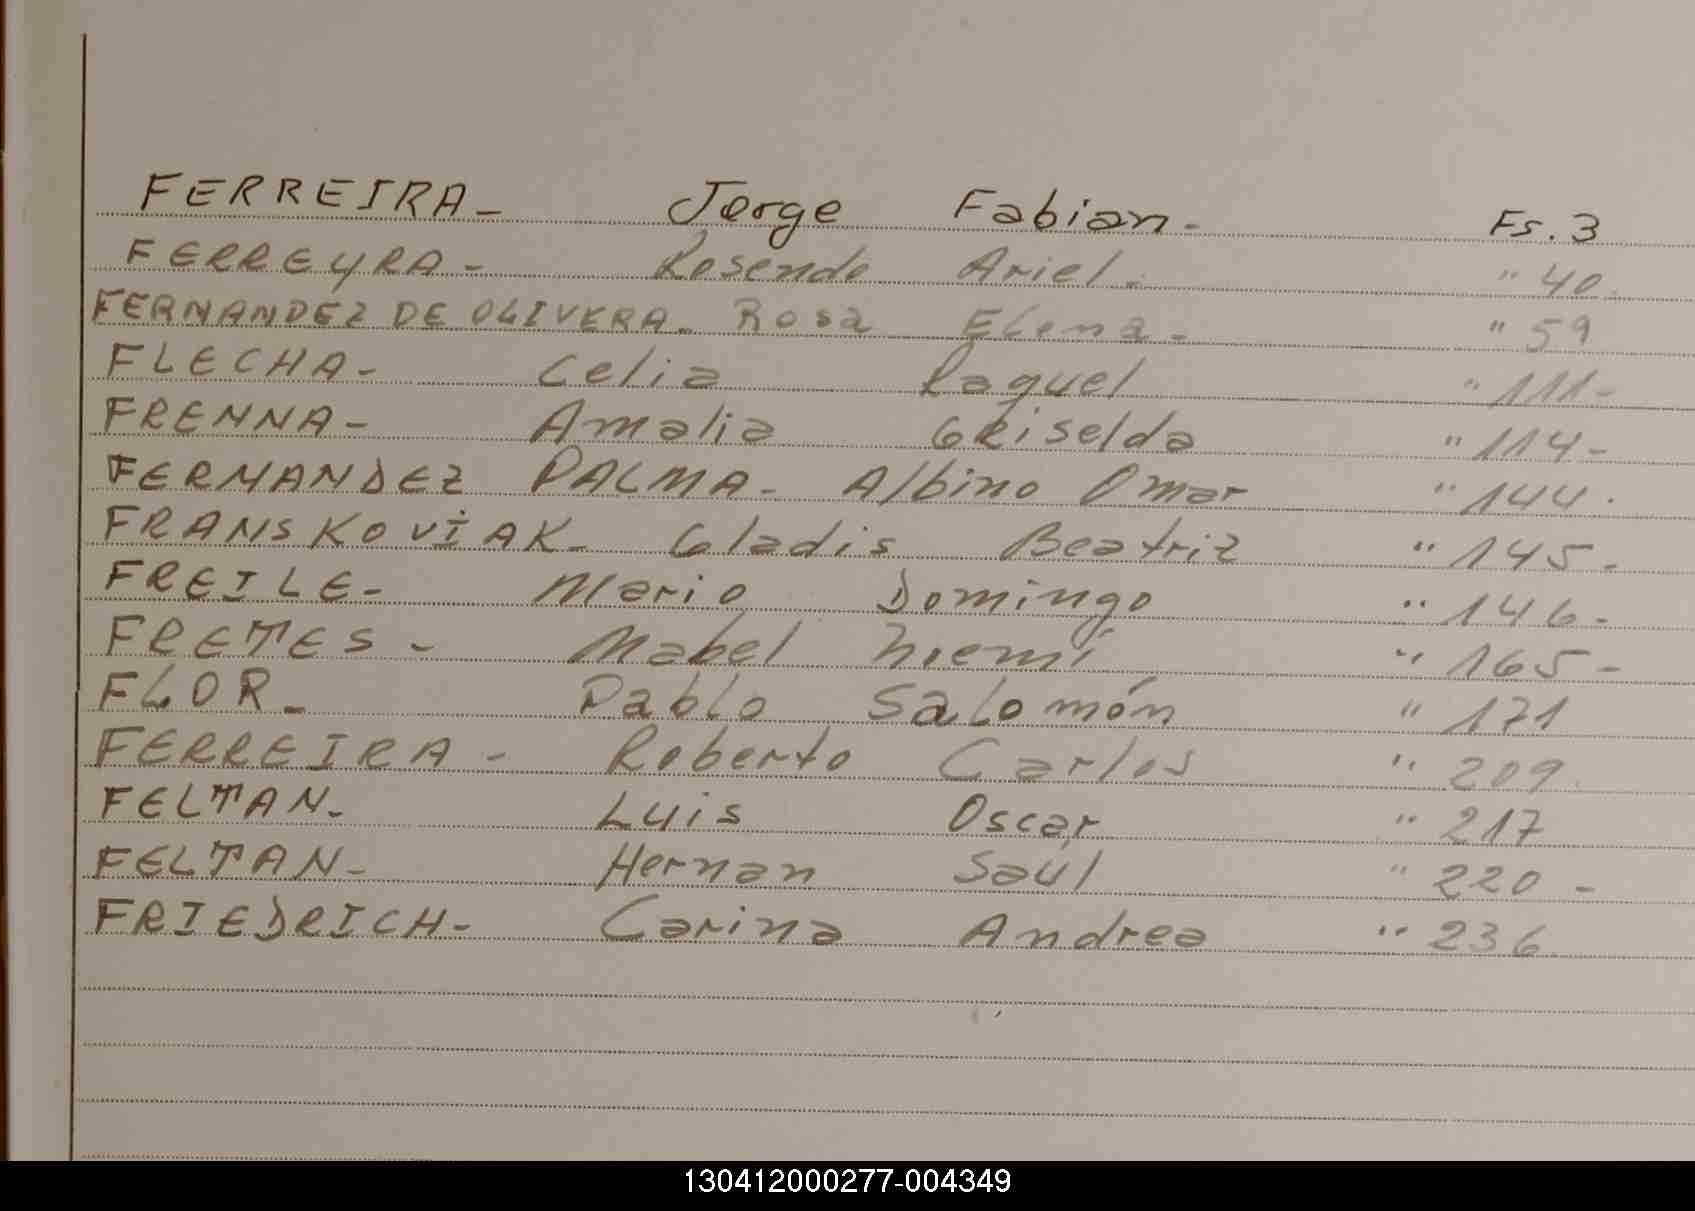 FERREIRA- Jorge Fabian- Fs. 3
FERREYRA- Rosendo Ariel. " 40.
FERNANDEZ DE OLIVERA- Rosa Elena- " 59
FLECHA- Celia Raquel " 111-
FRENNA- Amalia Griselda " 114-
FERNANDEZ PALMA- Albino Omar " 144.
FRANSKOVIAK- Gladis Beatriz " 145-
FREILE- Mario Domingo " 146-
FRETES- Mabel Noemí " 165-
FLOR- Pablo Salomón " 171
FERREIRA- Roberto Carlos " 209.
FELTAN- Luis Oscar " 217
FELTAN- Hernan Saul " 220-
FRIEDRICH- Carina Andrea " 236.
130412000277-004349